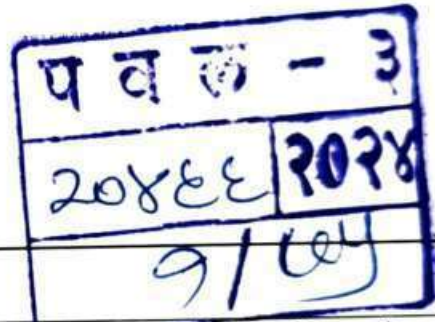 प व ल - ३
२०४६६ २०२४
१/७५